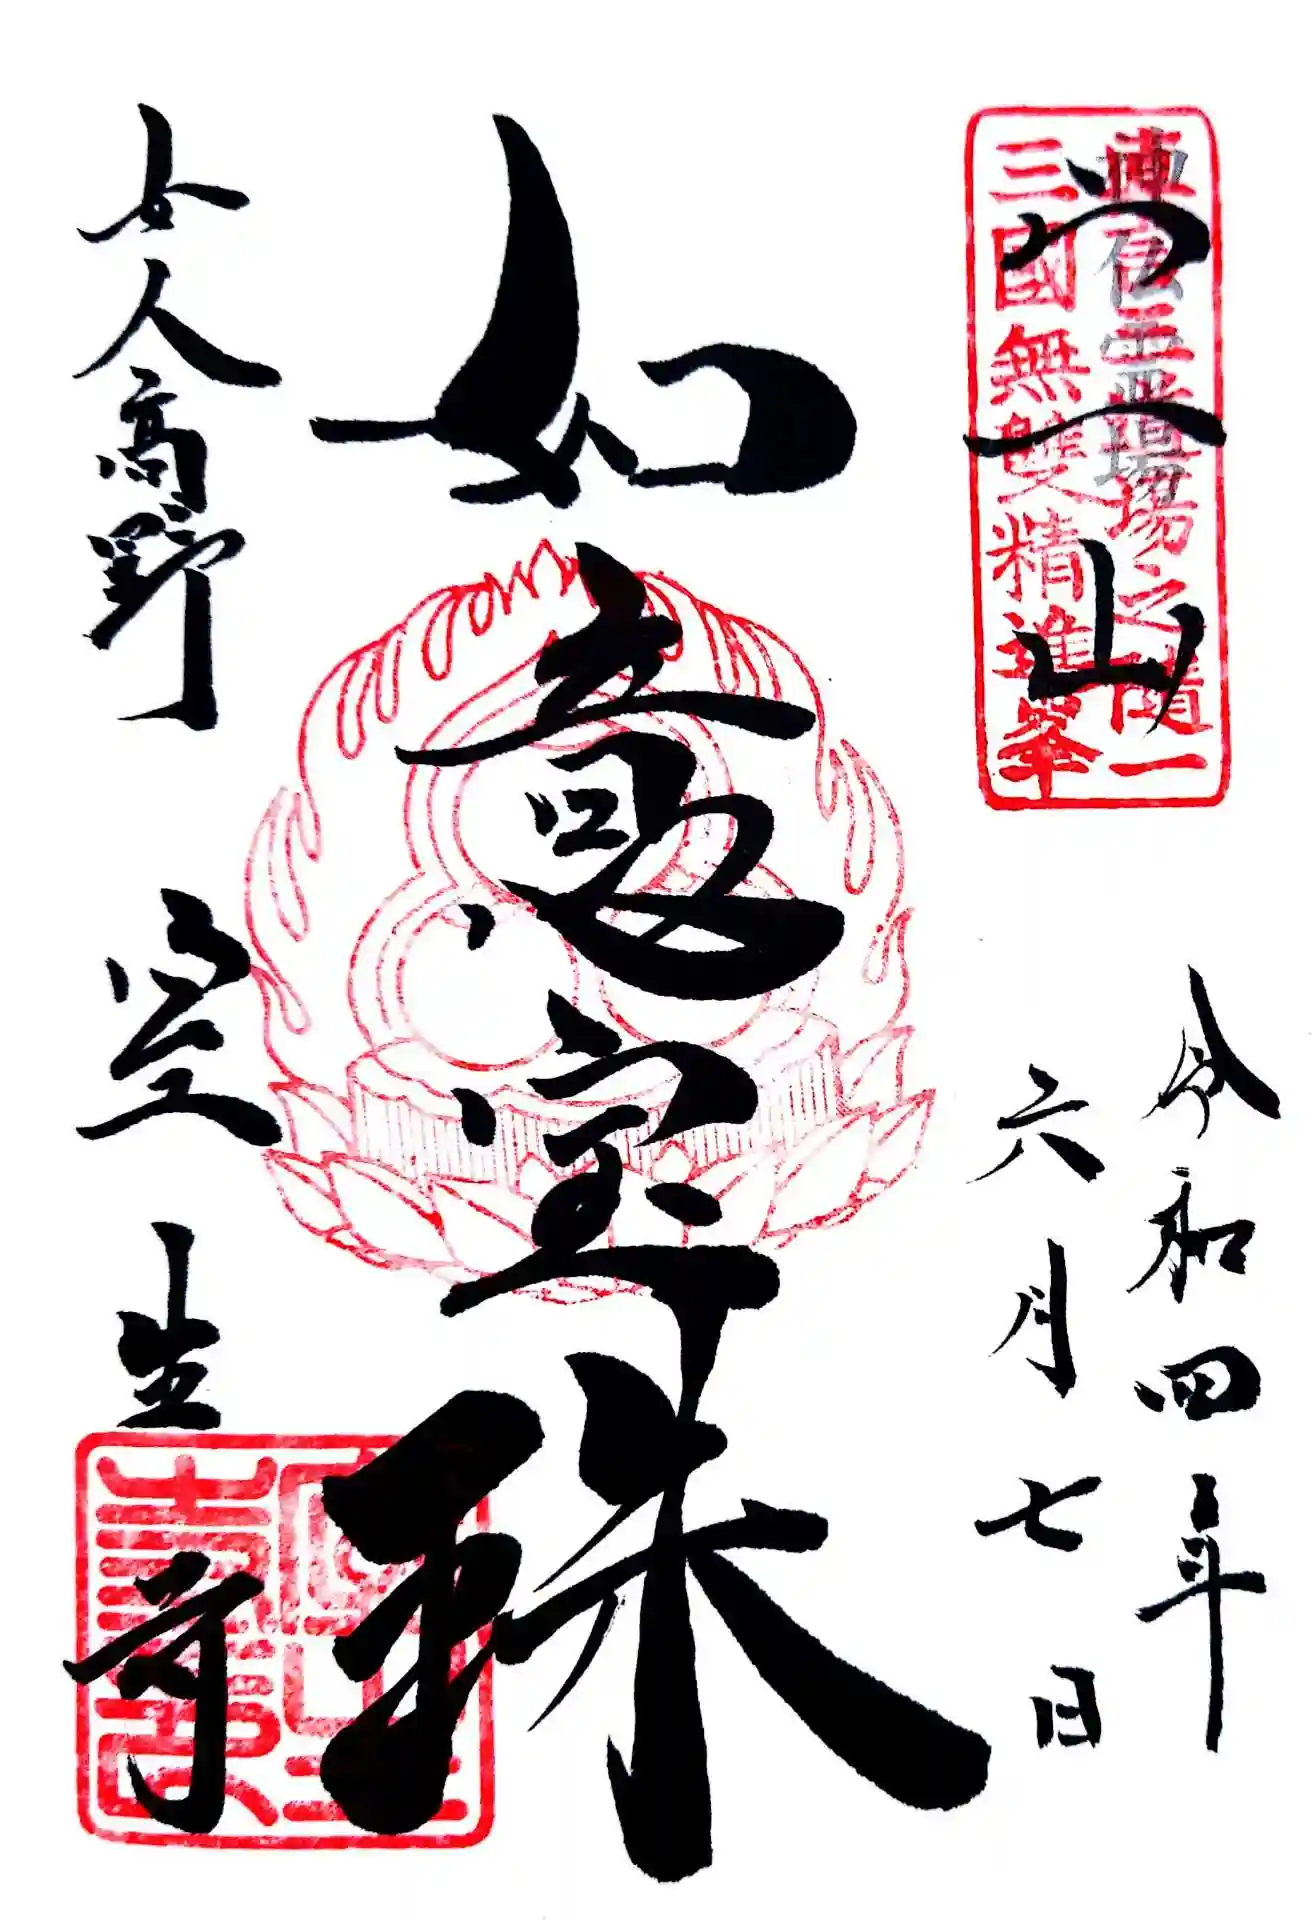 霊場之随一
三國無雙精進峯
宀一山
令和四年
六月七日
如意宝珠
女人高野 室生寺